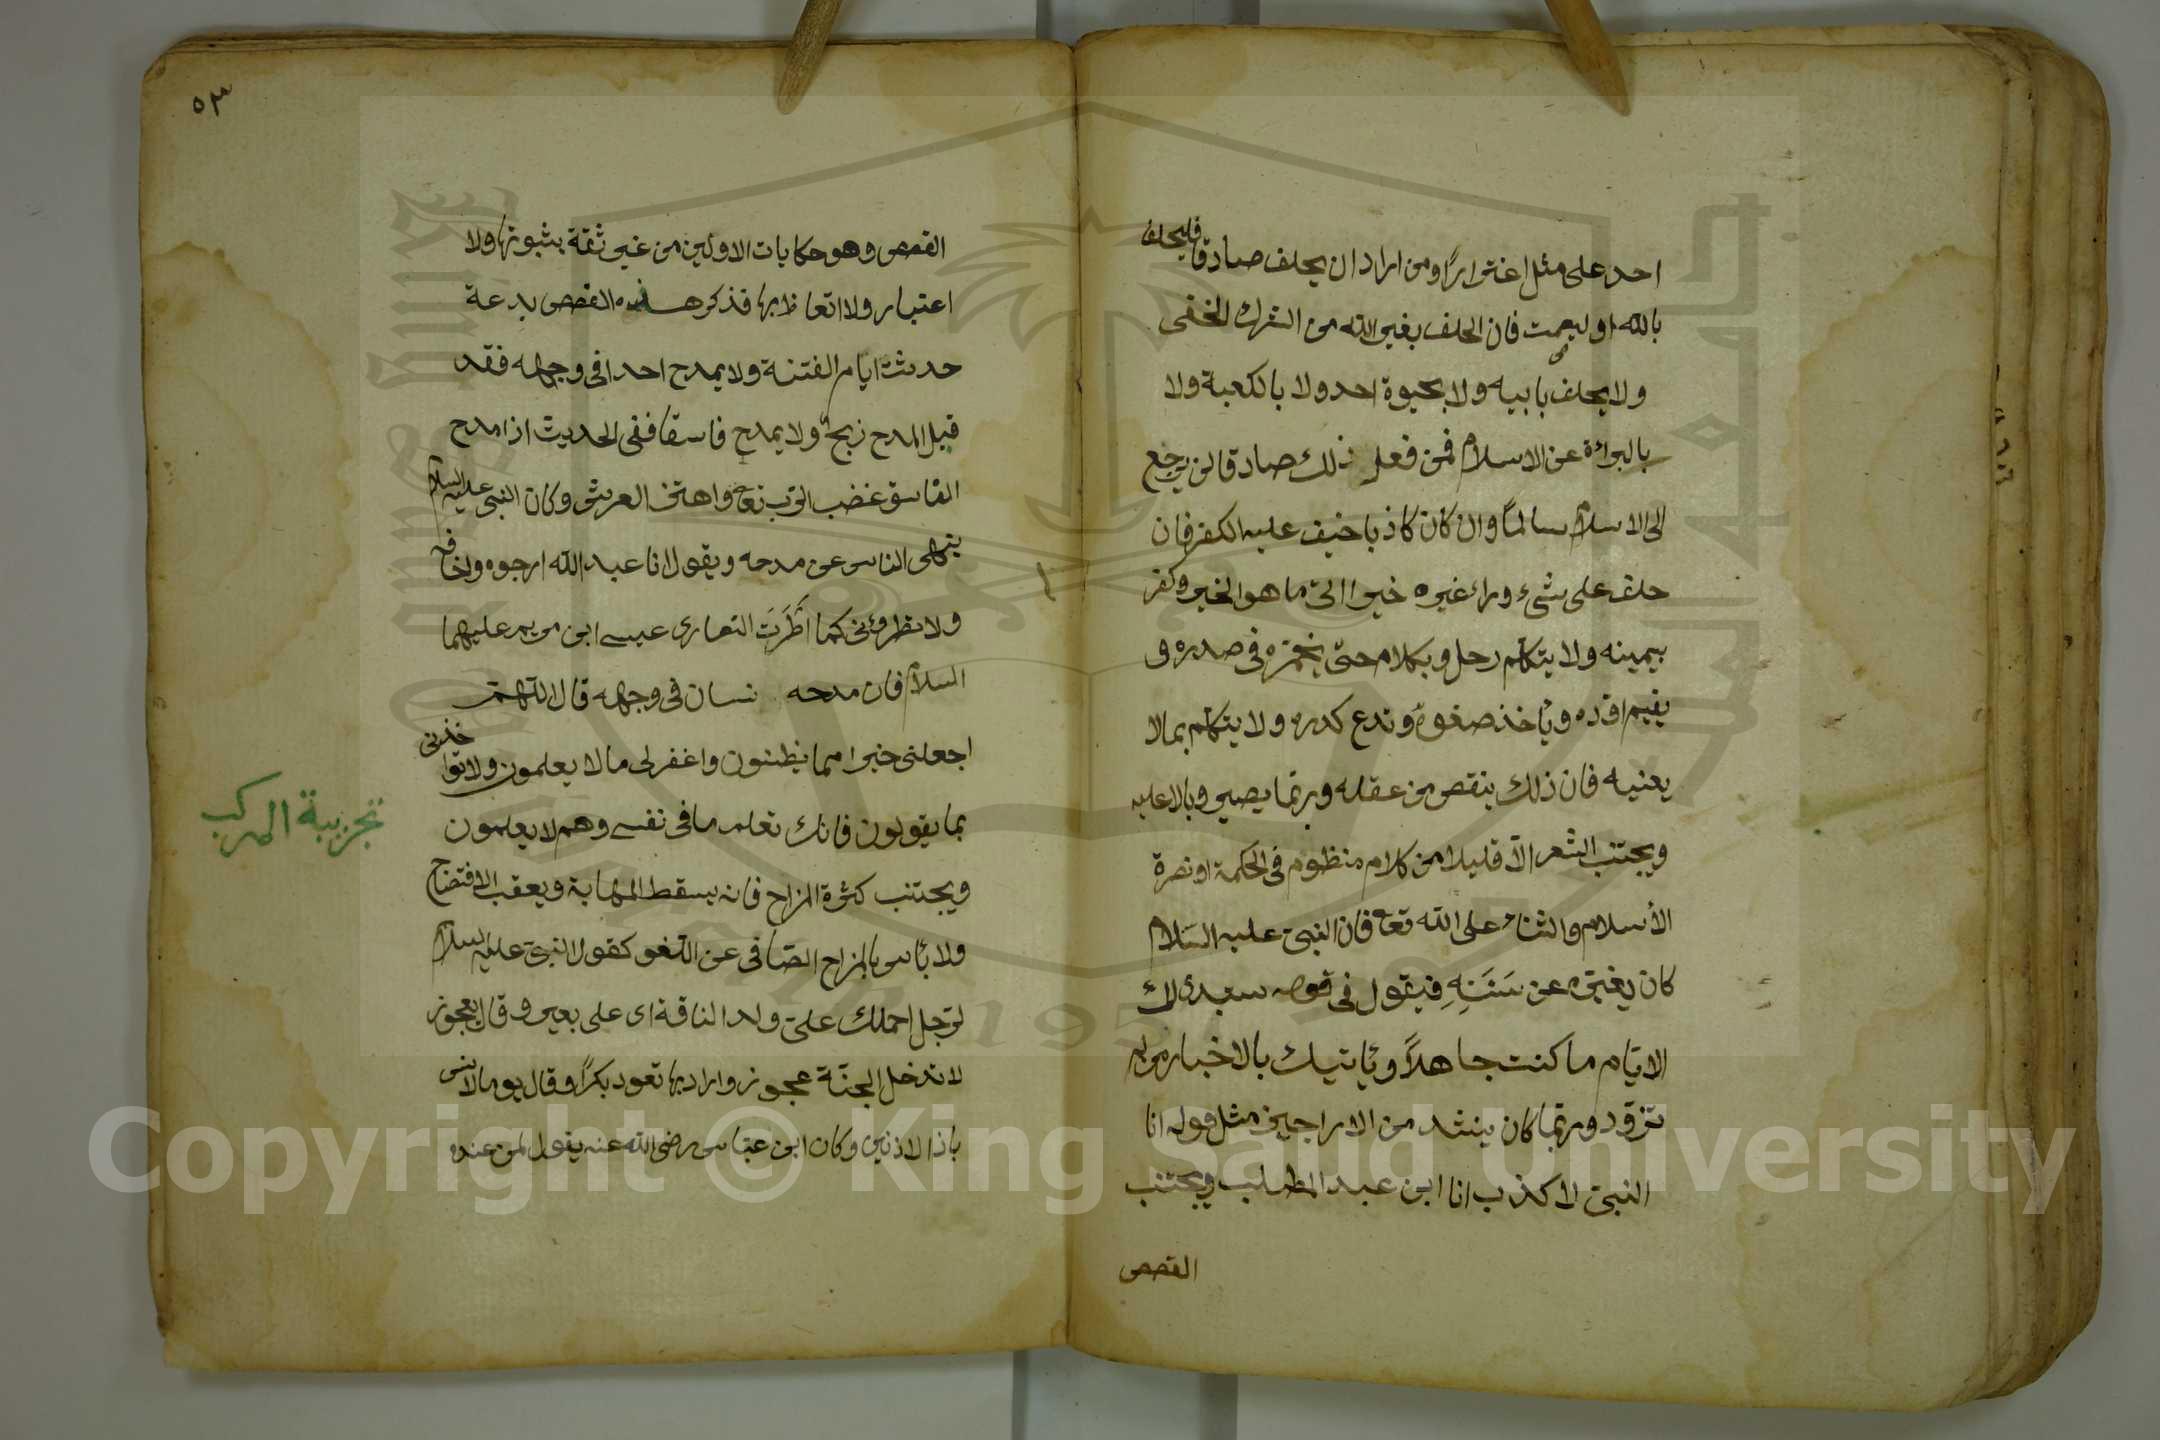 احد على مثل اغترارًا ومن اراد ان يحلف صادقا فليحلف
بالله او ليصمت فان الحلف بغير الله من الشرك الخفى
ولا يحلف بابيه ولا بحيوة احد ولا بالكعبة ولا
بالبراءة عن الاسلام فمن فعل ذلك صادقا لن يرجع
الى الاسلام سالمًا وان كان كاذبا خيف عليه الكفر فان
حلف على شئ وراء غيره خيرا اتى ما هو الخير وكفر
بيمينه ولا يتكلم رجل وبكلام حتى يخمره فى صدره و
يقيم اوده ويأخذ صفوه وتدع كدره ولا يتكلم بما لا
يعنيه فان ذلك ينقص من عقله وربما يصير وبالا عليه
ويجتنب الشعر الا قليلا من كلام منظوم فى الحكمة او نصرة
الأسلام والثناء على الله تعا فان النبى عليه السلام
كان يغيره عن سَنَنِهِ فيقول فى قوله سيبدى لك
الايام ما كنت جاهلاً ويأتيك بالاخبار من لم
تزود وربما كان ينشد من الاراجيز مثل قوله انا
النبى لا كذب انا ابن عبد المطلب ويجتنب
القصص
٥٣
القصص وهو حكايات الاولين من غير ثقة بثبوتها ولا
اعتبار ولا اتعاظ بها فذكر هذه القصص بدعة
حدثت ايام الفتنة ولا يمدح احدا فى وجهه فقد
قيل المدح ذبح ولا يمدح فاسقا ففى الحديث اذا مدح
الفاسق غضب الرب تعا واهتز العرش وكان النبى عليه السلام
ينهى الناس عن مدحه ويقول انا عبد الله ارجوه واخافه
ولا تطرؤنى كما أَطْرَت النصارى عيسى ابن مريم عليهما
السلام فان مدحه نسان فى وجهه قال اللهم
اجعلنى خيرا مما يظنون واغفر لى ما لا يعلمون ولا تؤاخذنى
بما يقولون فانك تعلم ما فى نفسى وهم لا يعلمون
ويجتنب كثرة المزاح فانه يسقط المهابة ويعقب الافتضاح
ولا بأس بالمزاح الصافى عن اللغو كقول النبى عليه السلام
لرجل احملك على ولد الناقة اى على بعير وقال لعجوز
لا تدخل الجنّة عجوز واراد بها تعود بكرًا وقال يوما لانس
ياذا الاذنين وكان ابن عباس رضى الله عنه يقول لمن عنده
تجريبة المركب
Copyright © King Saud University
King Saud University
1957